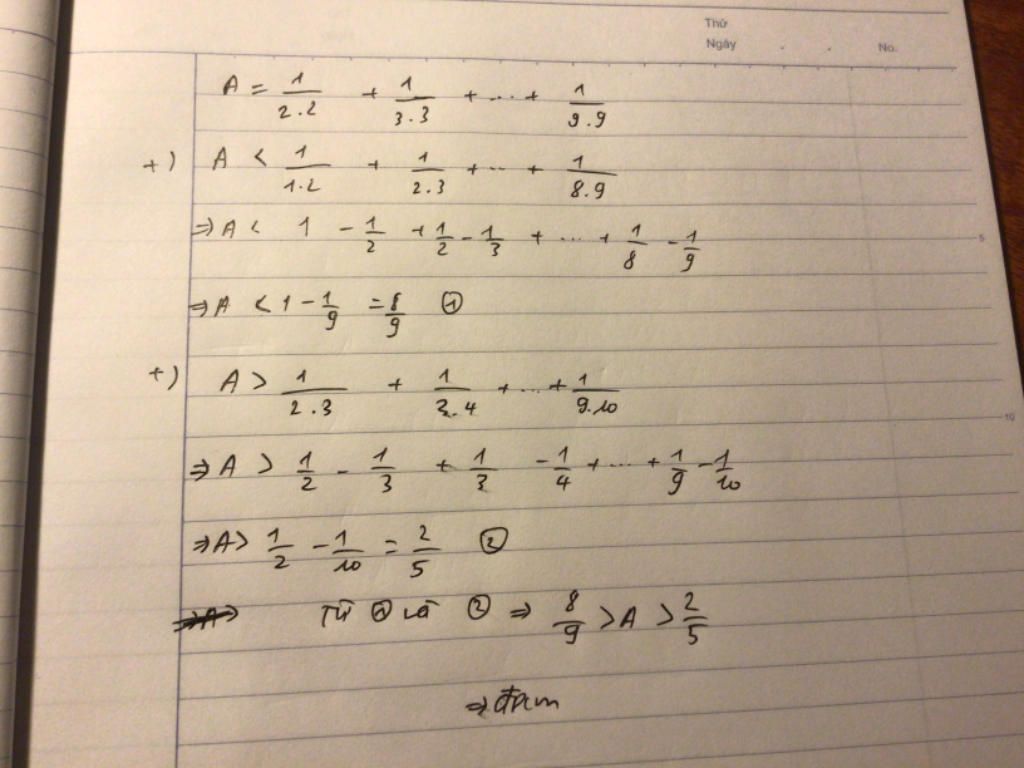 Thứ
Ngày . . No.
A = 1/2.2 + 1/3.3 + ... + 1/9.9
+) A < 1/1.2 + 1/2.3 + ... + 1/8.9
⇒ A < 1 - 1/2 + 1/2 - 1/3 + ... + 1/8 - 1/9
5
⇒ A < 1 - 1/9 = 8/9 ①
+) A > 1/2.3 + 1/3.4 + ... + 1/9.10
10
⇒ A > 1/2 - 1/3 + 1/3 - 1/4 + ... + 1/9 - 1/10
⇒ A > 1/2 - 1/10 = 2/5 ②
⇒ A > Từ ① và ② ⇒ 8/9 > A > 2/5
⇒ đpcm